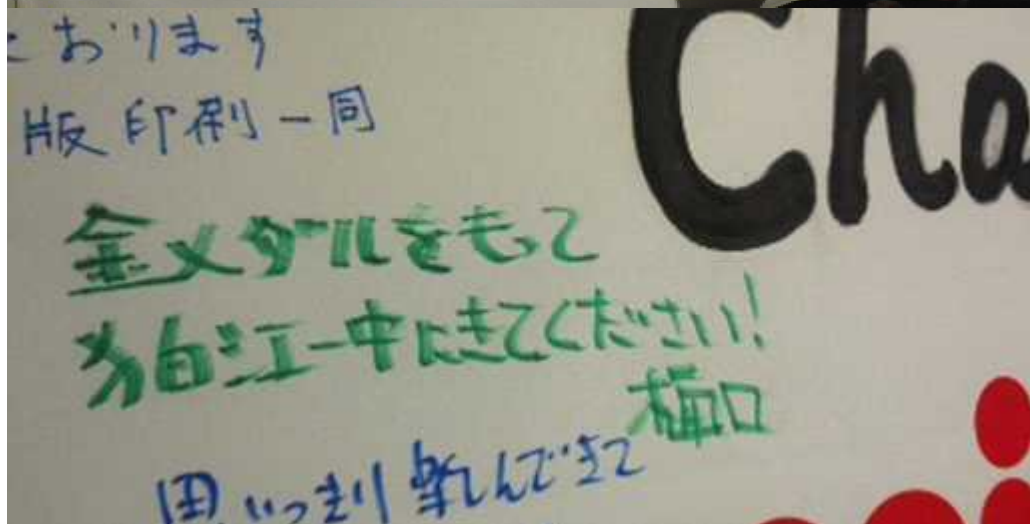 おります
版印刷一同
Cha
金メダルをもって
狛江一中にきてください!
梅口
思いっきり楽しんできて